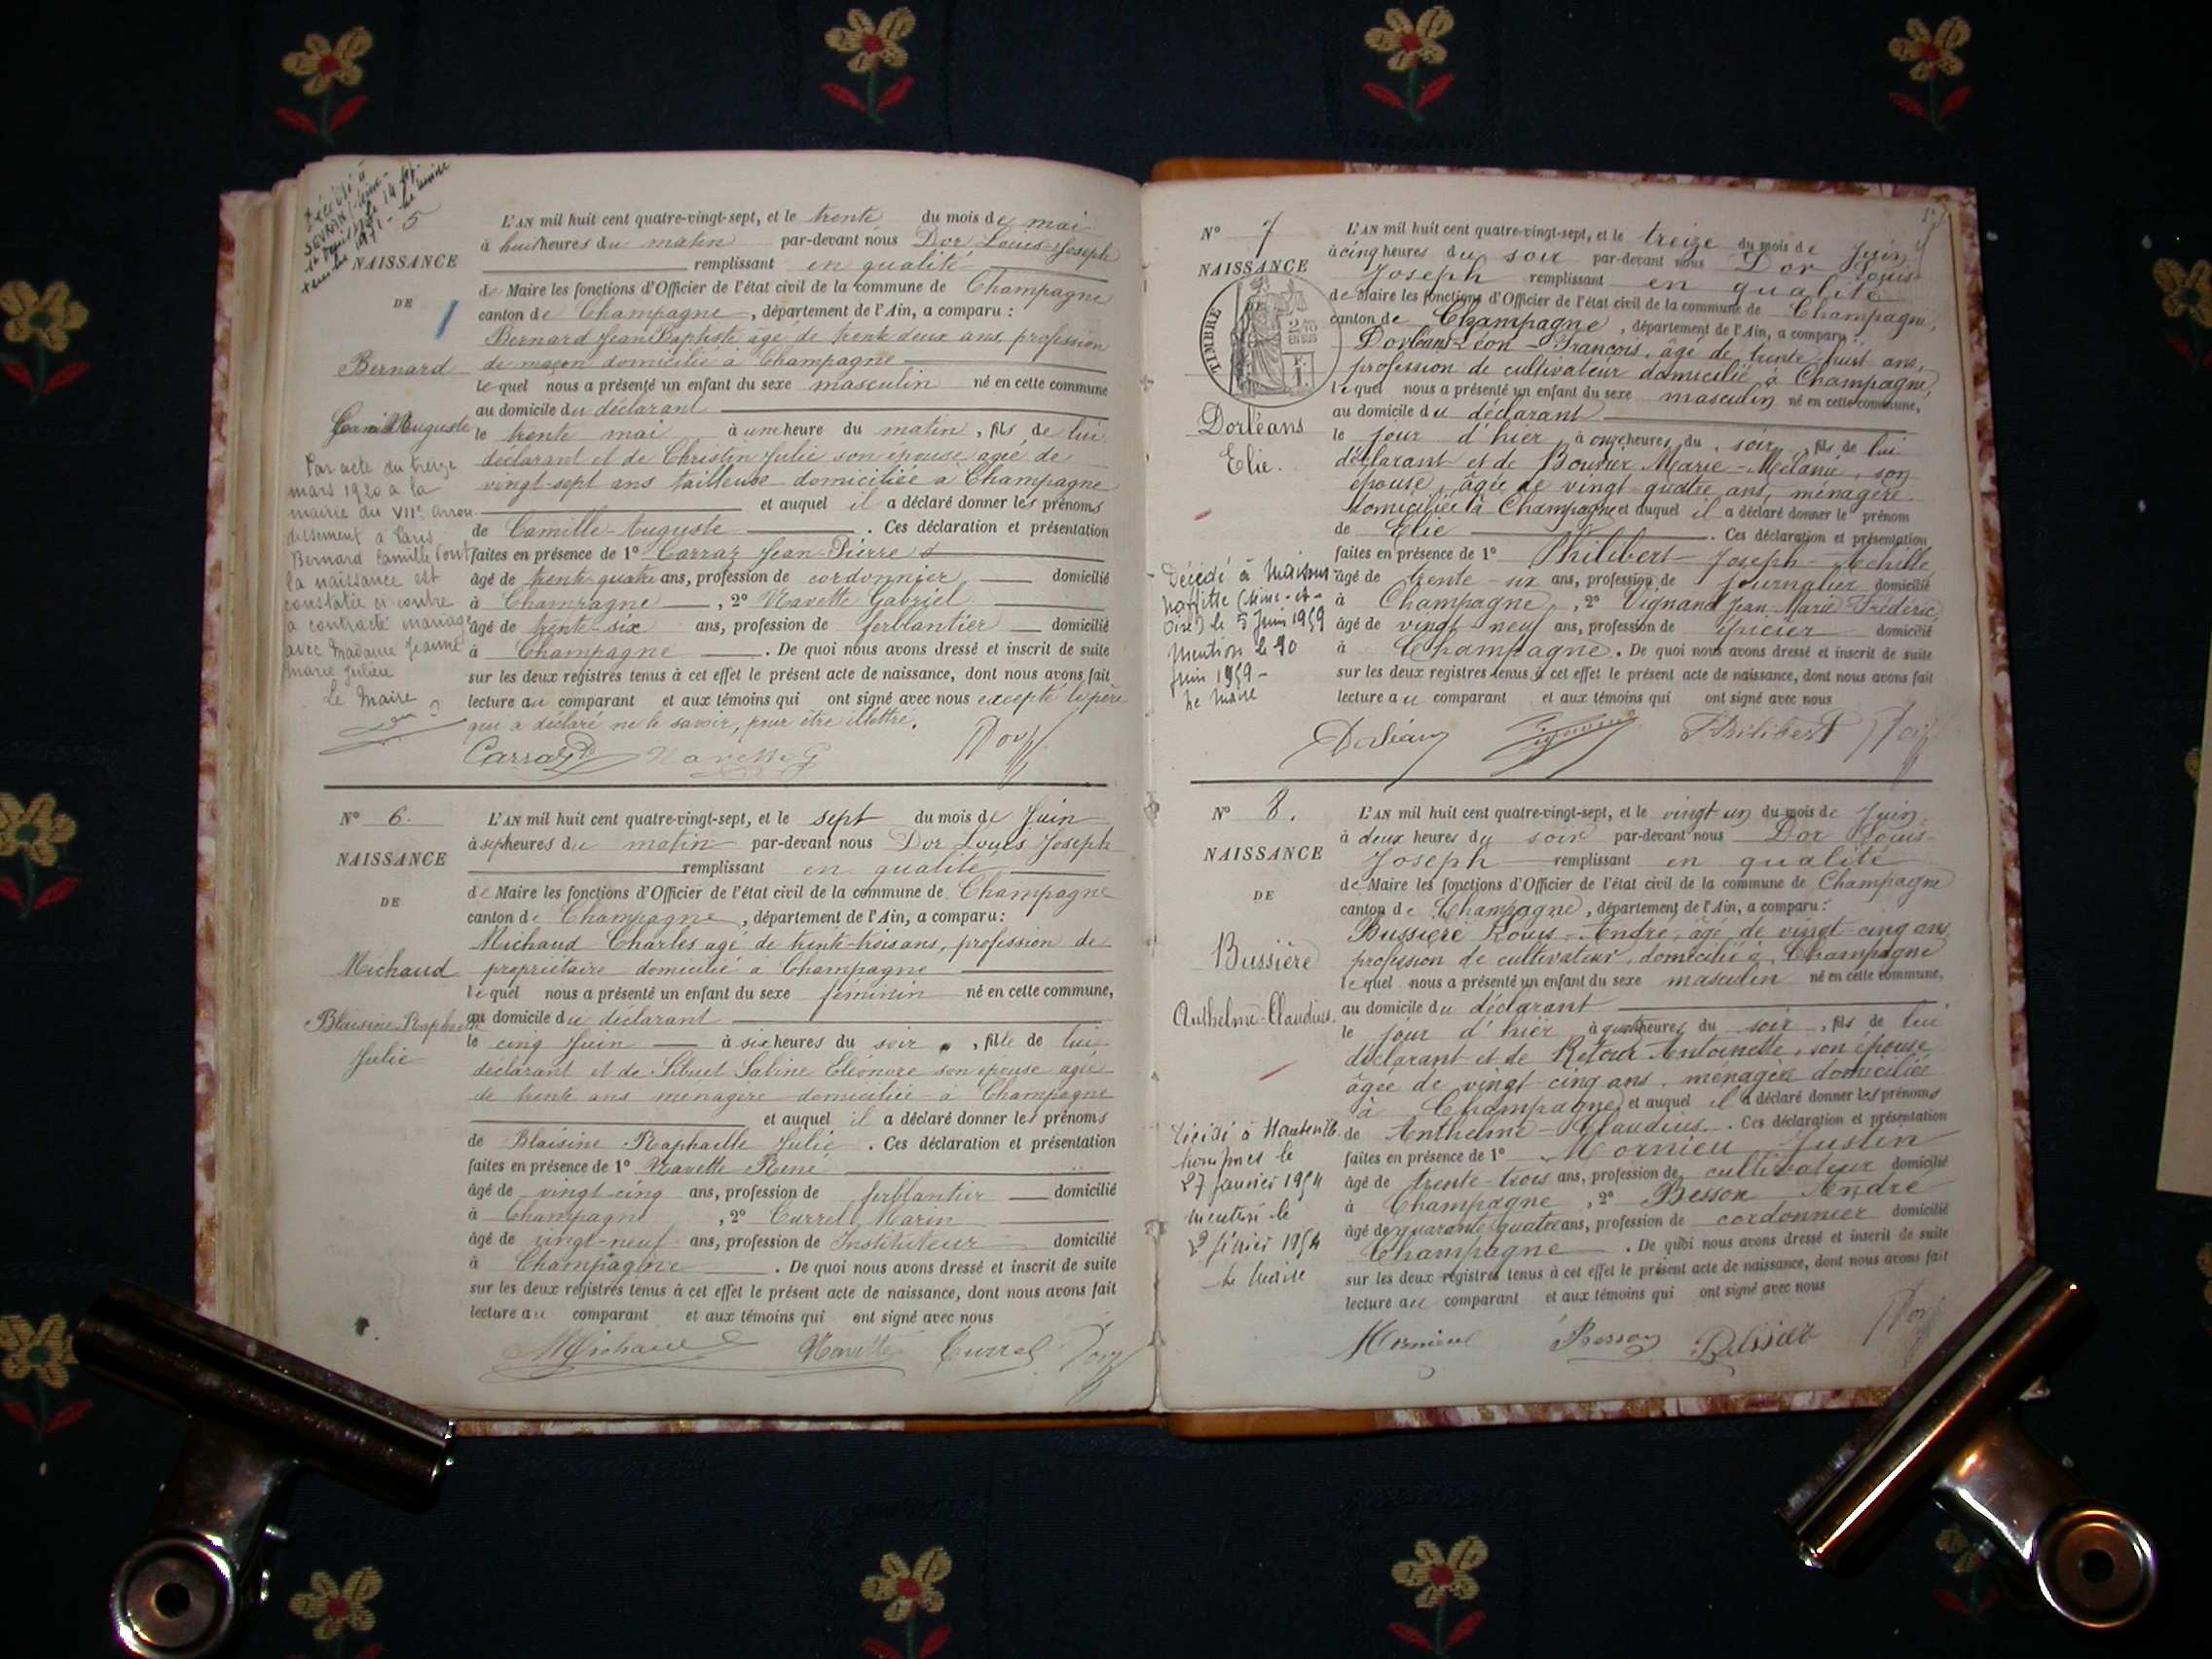 Décédé à
SEVRAN
5
NAISSANCE
DE
Bernard
Camille Auguste
Par acte du treize
mars 1920 à la
mairie du VIIe arron-
dissement à Paris
Bernard Camille dont
la naissance est
constatée ci contre
a contracté mariage
avec Madame Jeanne
Marie Julien
Le Maire
L'AN mil huit cent quatre-vingt-sept, et le trente du mois de mai
à huit heures du matin par-devant nous Dor Louis-Joseph
remplissant en qualité
de Maire les fonctions d'Officier de l'état civil de la commune de Champagne
canton de Champagne, département de l'Ain, a comparu :
Bernard Jean Baptiste âgé de trente deux ans, profession
de maçon domicilié à Champagne
lequel nous a présenté un enfant du sexe masculin né en cette commune
au domicile du déclarant
le trente mai à une heure du matin, fils de lui
déclarant et de Christin Julie son épouse agée de
vingt-sept ans tailleuse domiciliée à Champagne
et auquel il a déclaré donner les prénoms
de Camille-Auguste. Ces déclaration et présentation
faites en présence de 1° Carraz Jean-Pierre
âgé de trente-quatre ans, profession de cordonnier domicilié
à Champagne, 2° Navette Gabriel
âgé de trente-six ans, profession de ferblantier domicilié
à Champagne. De quoi nous avons dressé et inscrit de suite
sur les deux registres tenus à cet effet le présent acte de naissance, dont nous avons fait
lecture au comparant et aux témoins qui ont signé avec nous excepté le père
qui a déclaré ne le savoir, pour être illettré.
Carraz P Navette G Dor
N° 6.
NAISSANCE
DE
Michaud
Blaisine Raphaelle
Julie
L'AN mil huit cent quatre-vingt-sept, et le sept du mois de Juin
à sept heures du matin par-devant nous Dor Louis Joseph
remplissant en qualité
de Maire les fonctions d'Officier de l'état civil de la commune de Champagne
canton de Champagne, département de l'Ain, a comparu :
Michaud Charles agé de trente-trois ans, profession de
propriétaire domicilié à Champagne
lequel nous a présenté un enfant du sexe féminin né en cette commune,
au domicile du déclarant
le cinq Juin à six heures du soir, fille de lui
déclarant et de Sibuet Sabine Eléonore son épouse agée
de trente ans ménagère domiciliée à Champagne
et auquel il a déclaré donner les prénoms
de Blaisine Raphaelle Julie. Ces déclaration et présentation
faites en présence de 1° Navette René
âgé de vingt-cinq ans, profession de ferblantier domicilié
à Champagne, 2° Currel Marin
âgé de vingt-neuf ans, profession de Instituteur domicilié
à Champagne. De quoi nous avons dressé et inscrit de suite
sur les deux registres tenus à cet effet le présent acte de naissance, dont nous avons fait
lecture au comparant et aux témoins qui ont signé avec nous
Michaud Navette Currel Dor
N° 7
NAISSANCE
TIMBRE
Dorléans
Elie.
Décédé à Maisons-
Laffitte (Seine-et-
Oise) le 5 Juin 1959
Mention le 20
Juin 1959-
Le Maire
L'AN mil huit cent quatre-vingt-sept, et le treize du mois de Juin
à cinq heures du soir par-devant nous Dor Louis-
Joseph remplissant en qualité
de Maire les fonctions d'Officier de l'état civil de la commune de Champagne,
canton de Champagne, département de l'Ain, a comparu :
Dorléans Léon-François, âgé de trente-huit ans,
profession de cultivateur domicilié à Champagne,
lequel nous a présenté un enfant du sexe masculin né en cette commune,
au domicile du déclarant
le jour d'hier, à onze heures du soir, fils de lui
déclarant et de Bouvier Marie-Mélanie, son
épouse, âgée de vingt-quatre ans, ménagère
domiciliée à Champagne et auquel il a déclaré donner le prénom
de Elie. Ces déclaration et présentation
faites en présence de 1° Philibert Joseph-Achille
âgé de trente-six ans, profession de journalier domicilié
à Champagne, 2° Vignand Jean-Marie Frédéric
âgé de vingt-neuf ans, profession de épicier domicilié
à Champagne. De quoi nous avons dressé et inscrit de suite
sur les deux registres tenus à cet effet le présent acte de naissance, dont nous avons fait
lecture au comparant et aux témoins qui ont signé avec nous
Dorléans Vignand Philibert Dor
N° 8.
NAISSANCE
DE
Bussière
Anthelme-Claudius.
Décédé à Hauteville
Lompnes le
27 janvier 1954
Mention le
2 février 1954
Le Maire
L'AN mil huit cent quatre-vingt-sept, et le vingt un du mois de Juin
à deux heures du soir par-devant nous Dor Louis-
Joseph remplissant en qualité
de Maire les fonctions d'Officier de l'état civil de la commune de Champagne
canton de Champagne, département de l'Ain, a comparu :
Bussière Louis-André, âgé de vingt-cinq ans
profession de cultivateur, domicilié à Champagne
lequel nous a présenté un enfant du sexe masculin né en cette commune,
au domicile du déclarant
le jour d'hier, à quatre heures du soir, fils de lui
déclarant et de Retour Antoinette, son épouse
âgée de vingt-cinq ans, ménagère domiciliée
à Champagne et auquel il a déclaré donner les prénoms
de Anthelme-Claudius. Ces déclaration et présentation
faites en présence de 1° Mornieu Justin
âgé de trente-trois ans, profession de cultivateur domicilié
à Champagne, 2° Besson André
âgé de quarante quatre ans, profession de cordonnier domicilié
Champagne. De quoi nous avons dressé et inscrit de suite
sur les deux registres tenus à cet effet le présent acte de naissance, dont nous avons fait
lecture au comparant et aux témoins qui ont signé avec nous
Mornieu Besson Bussière Dor